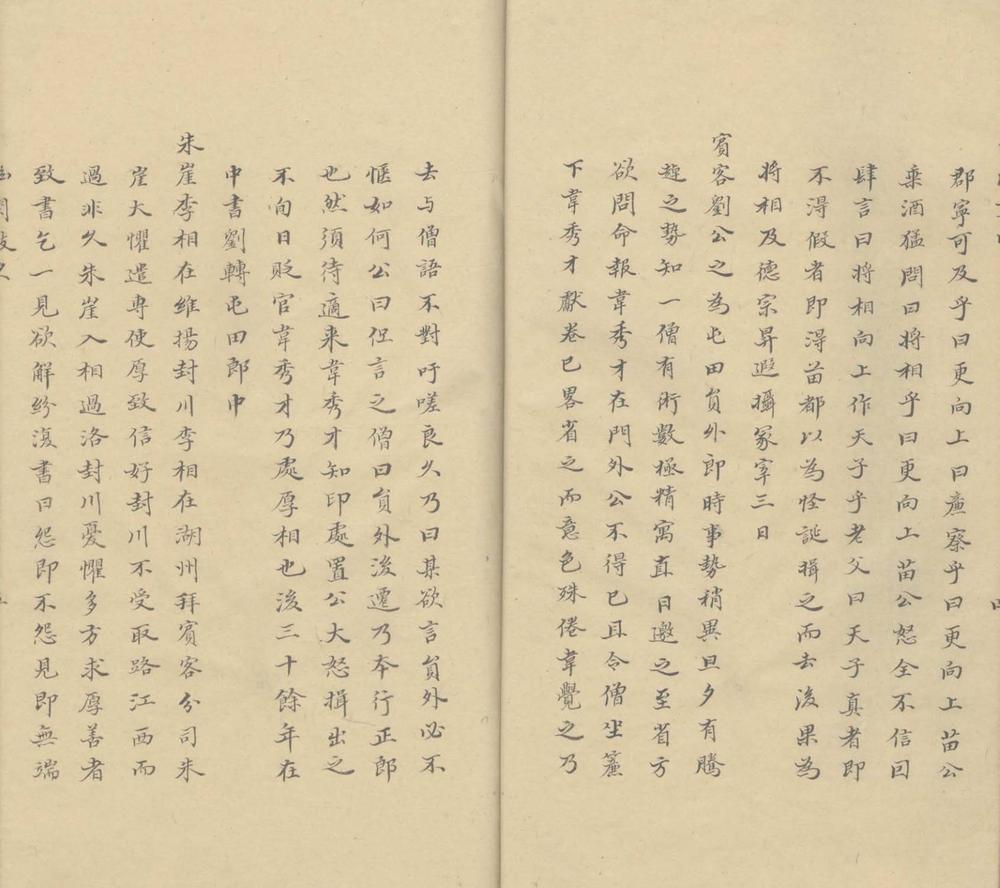 郡寧可及乎曰更向上曰廉察乎曰更向上苗公
乘酒猛問曰將相乎曰更向上苗公怒全不信囙
肆言曰將相向上作天子乎老父曰天子真者即
不淂假者即淂苗都以為怪誕揖之而去後果為
將相及德宗昇遐攝冢宰三日
賔客劉公之為屯田貟外郎時事勢稍異旦夕有騰
趠之勢知一僧有術數極精寓直日邀之至省方
欲問命報韋秀才在門外公不得已且令僧坐簾
下韋秀才獻卷已畧省之而意色殊倦韋覺之乃
去与僧語不對吁嗟良久乃曰某欲言貟外必不
愜如何公曰但言之僧曰貟外後遷乃夲行正郎
也然須待適来韋秀才知印處置公大怒揖出之
不旬日貶官韋秀才乃處厚相也後三十餘年在
中書劉轉屯田郎中
朱崖李相在維揚封川李相在湖州拜賔客分司朱
崖大懼遣専使厚致信好封川不受取路江西而
過非久朱崖入相過洛封川憂懼多方求厚善者
致書乞一見欲解紛復書曰怨即不怨見即無端